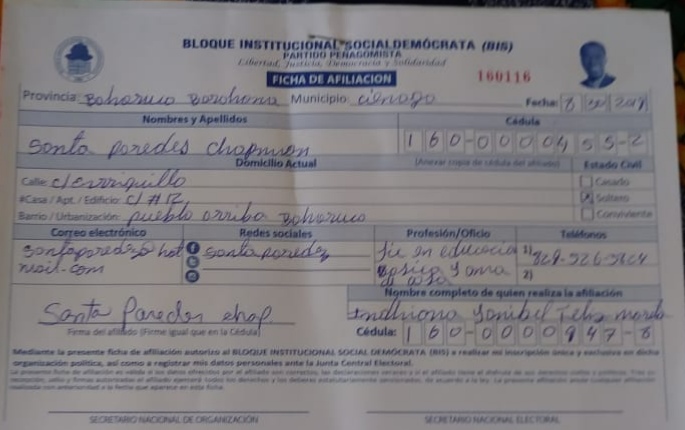 BLOQUE INSTITUCIONAL SOCIALDEMÓCRATA (BIS)
PARTIDO PEÑAGOMISTA
Libertad, Justicia, Democracia y Solidaridad
FICHA DE AFILIACION
160116
Provincia: Bahoruco Barahona Municipio: cienaga Fecha: 8
Nombres y Apellidos Cédula
Santa paredes chapman 160-0000455-2
Domicilio Actual (Anexar copia de cédula del afiliado) Estado Civil
Calle: c/enriquillo Casado
#Casa / Apt. / Edificio: c/ #12 Soltero
Barrio / Urbanización: pueblo arriba Bahoruco Conviviente
Correo electrónico Redes sociales Profesión/Oficio Teléfonos
santaparedes hot santa paredes lic en educacia 1) 829-526-
mail-com basica y ama 2)
de casa
Nombre completo de quien realiza la afiliación
Santa Paredes chap.
Firma del afiliado (Firme igual que en la Cédula) Cédula: 160-0000947-8
Mediante la presente ficha de afiliación autorizo al BLOQUE INSTITUCIONAL SOCIAL DEMÓCRATA (BIS) a realizar mi inscripción única y exclusiva en dicha
organización política, así como a registrar mis datos personales ante la Junta Central Electoral.
SECRETARIO NACIONAL DE ORGANIZACIÓN SECRETARIO NACIONAL ELECTORAL